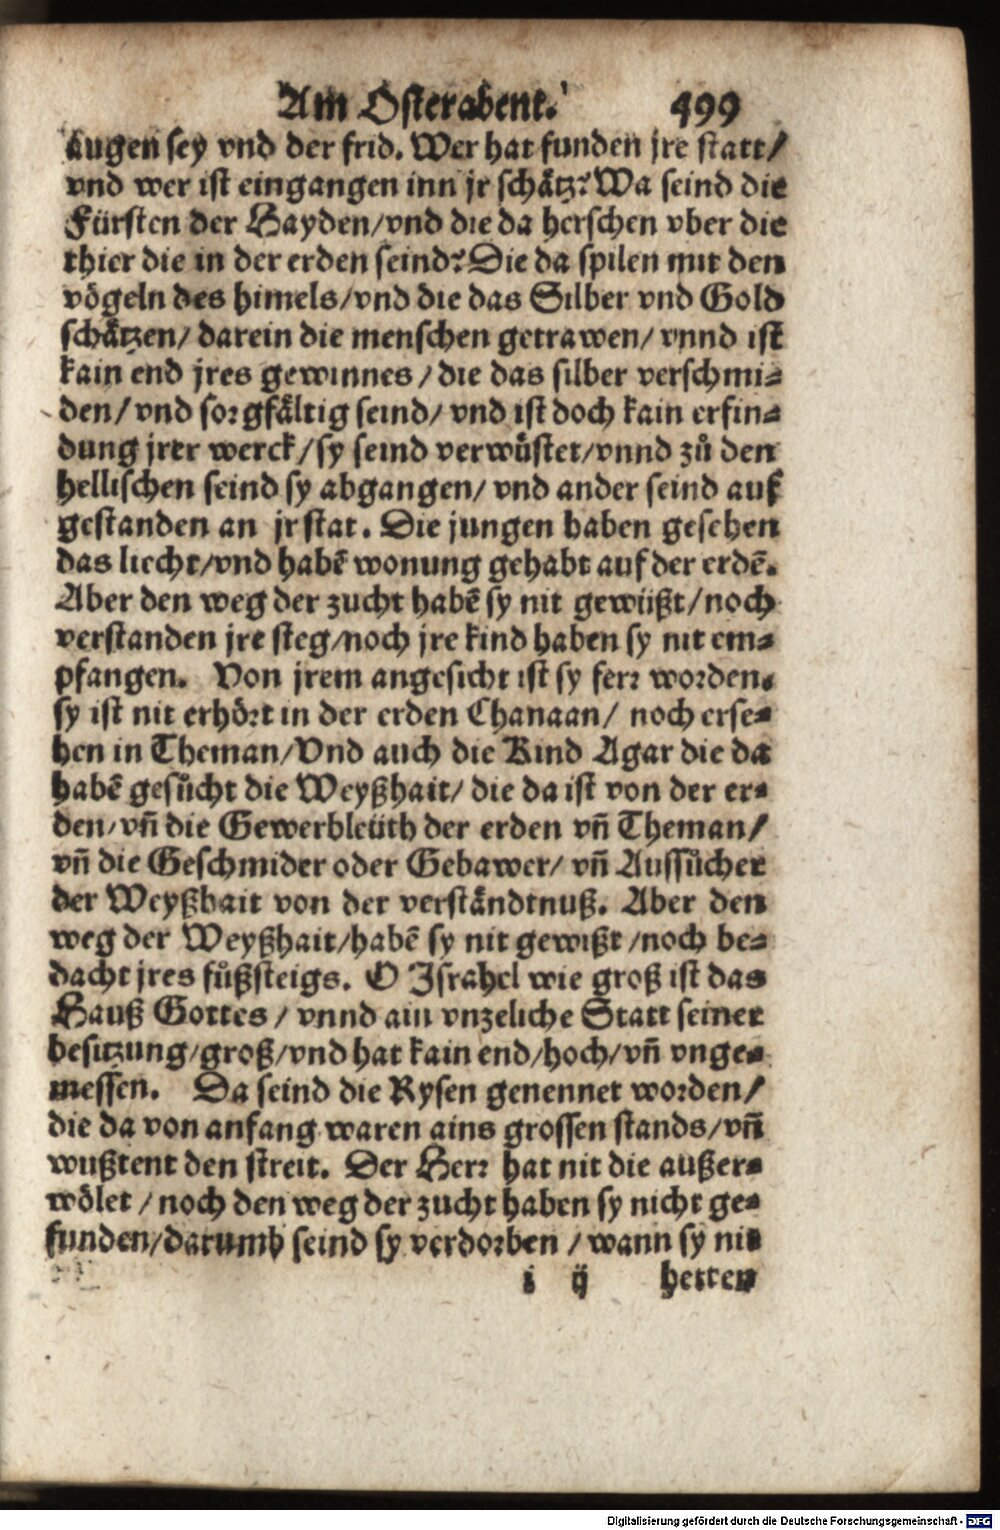 Am Osterabent. 499
augen sey vnd der frid. Wer hat funden jre statt/
vnd wer ist eingangen inn jr schätz? Wa seind die
Fürsten der Hayden/vnd die da herschen vber die
thier die in der erden seind? Die da spilen mit den
vögeln des himels/vnd die das Silber vnd Gold
schätzen/ darein die menschen getrawen/ vnnd ist
kain end jres gewinnes/ die das silber verschmi-
den/ vnd sorgfältig seind/ vnd ist doch kain erfin-
dung jrer werck/ sy seind verwüstet/vnnd zů den
hellischen seind sy abgangen/ vnd ander seind auf
gestanden an jr stat. Die jungen haben gesehen
das liecht/vnd habẽ wonung gehabt auf der erdẽ.
Aber den weg der zucht habẽ sy nit gewüßt/noch
verstanden jre steg/noch jre kind haben sy nit em-
pfangen. Von jrem angesicht ist sy ferr worden.
sy ist nit erhört in der erden Chanaan/ noch erse-
hen in Theman/Vnd auch die Kind Agar die da
habẽ gesůcht die Weyßhait/ die da ist von der er-
den/vñ die Gewerbleüth der erden vñ Theman/
vñ die Geschmider oder Gebawer/ vñ Aussůcher
der Weyßhait von der verständtnuß. Aber den
weg der Weyßhait/habẽ sy nit gewißt/noch be-
dacht jres fůßsteigs. O Israhel wie groß ist das
Hauß Gottes/ vnnd ain vnzeliche Statt seiner
besitzung/groß/vnd hat kain end/hoch/vñ vnge-
messen. Da seind die Rysen genennet worden/
die da von anfang waren ains grossen stands/vñ
wußtent den streit. Der Herr hat nit die außer-
wölet/ noch den weg der zucht haben sy nicht ge-
funden/darumb seind sy verdorben/ wann sy nit
i ij hetten
Digitalisierung gefördert durch die Deutsche Forschungsgemeinschaft - DFG